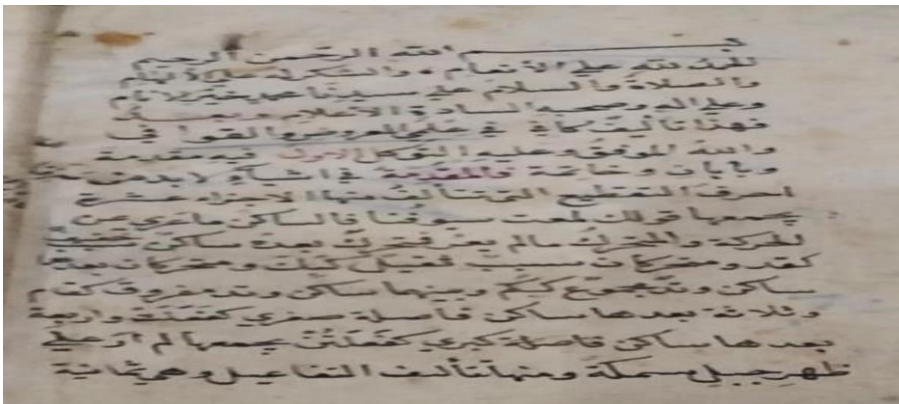 بسم الله الرحمن الرحيم
الحمد لله على الانعام والشكر له على الالهام
والصلاة والسلام على سيدنا محمد خير الانام
وعلى اله وصحبه السادة الاعلام وبعد
فهذا تأليف كافي في علمي العروض والقوافي
والله الموفق وعليه التوكل الاول فيه مقدمة
وبابان وخاتمة فالمقدمة في اشياء لابد منها
احرف التقطيع التي تتألف منها الاجزاء عشرة
يجمعها قولك لمعت سيوفنا فالساكن ما عري عن
الحركة والمتحرك مالم يعر فمتحرك بعده ساكن خفيف
كقد ومتحركان سبب ثقيل كبك ومتحركان بعدهما
ساكن وتد مجموع ككم وبينهما ساكن وتد مفروق كقام
وثلاثة بعدها ساكن فاصلة صغرى كفعلت واربعة
بعدها ساكن فاصلة كبرى كفعلتن يجمعها لم ار على
ظهر جبل سمكة ومنها تألف التفاعيل وهي ثمانية